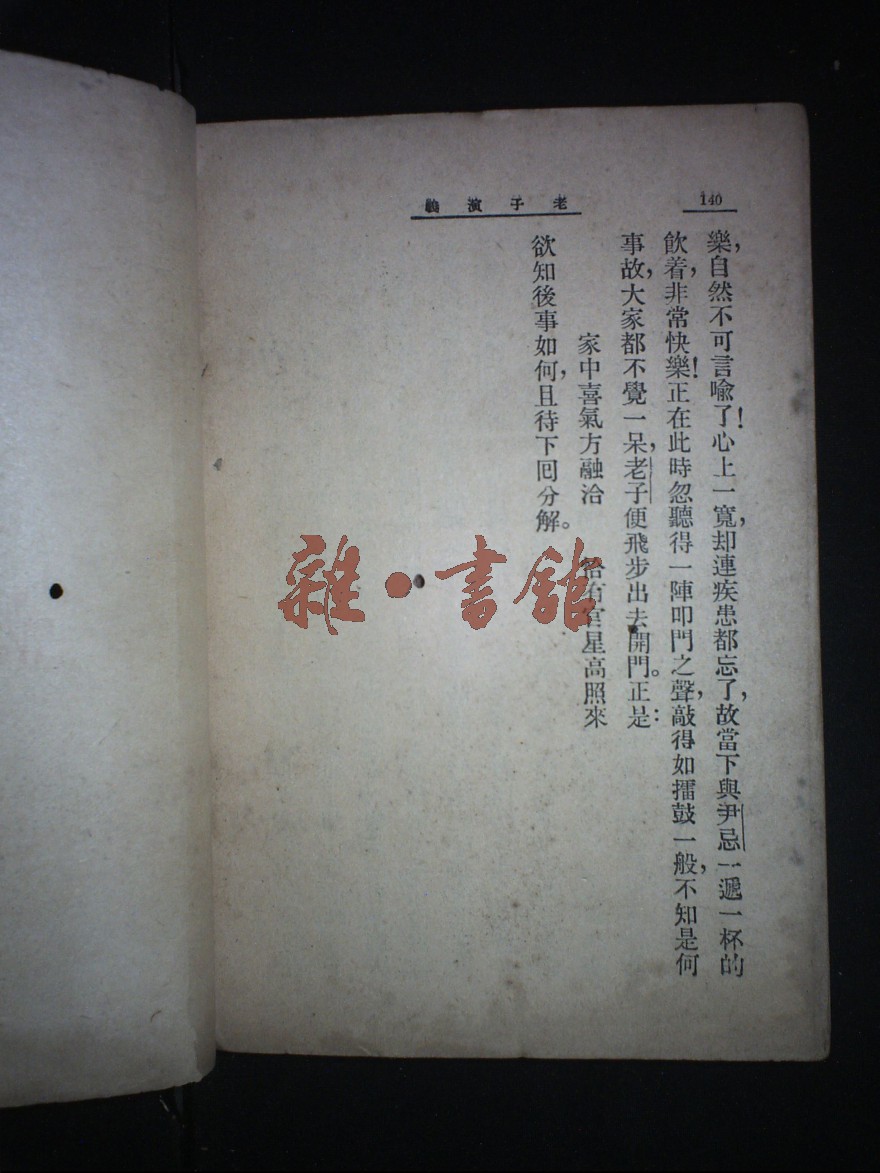 140
老子演義
樂，自然不可言喩了！心上一寬，却連疾患都忘了，故當下與尹忌一遞一杯的
飲着，非常快樂！正在此時忽聽得一陣叩門之聲，敲得如擂鼓一般，不知是何
事故，大家都不覺一呆，老子便飛步出去開門。正是：
家中喜氣方融洽　官星高照來
欲知後事如何，且待下回分解。
雜·書館